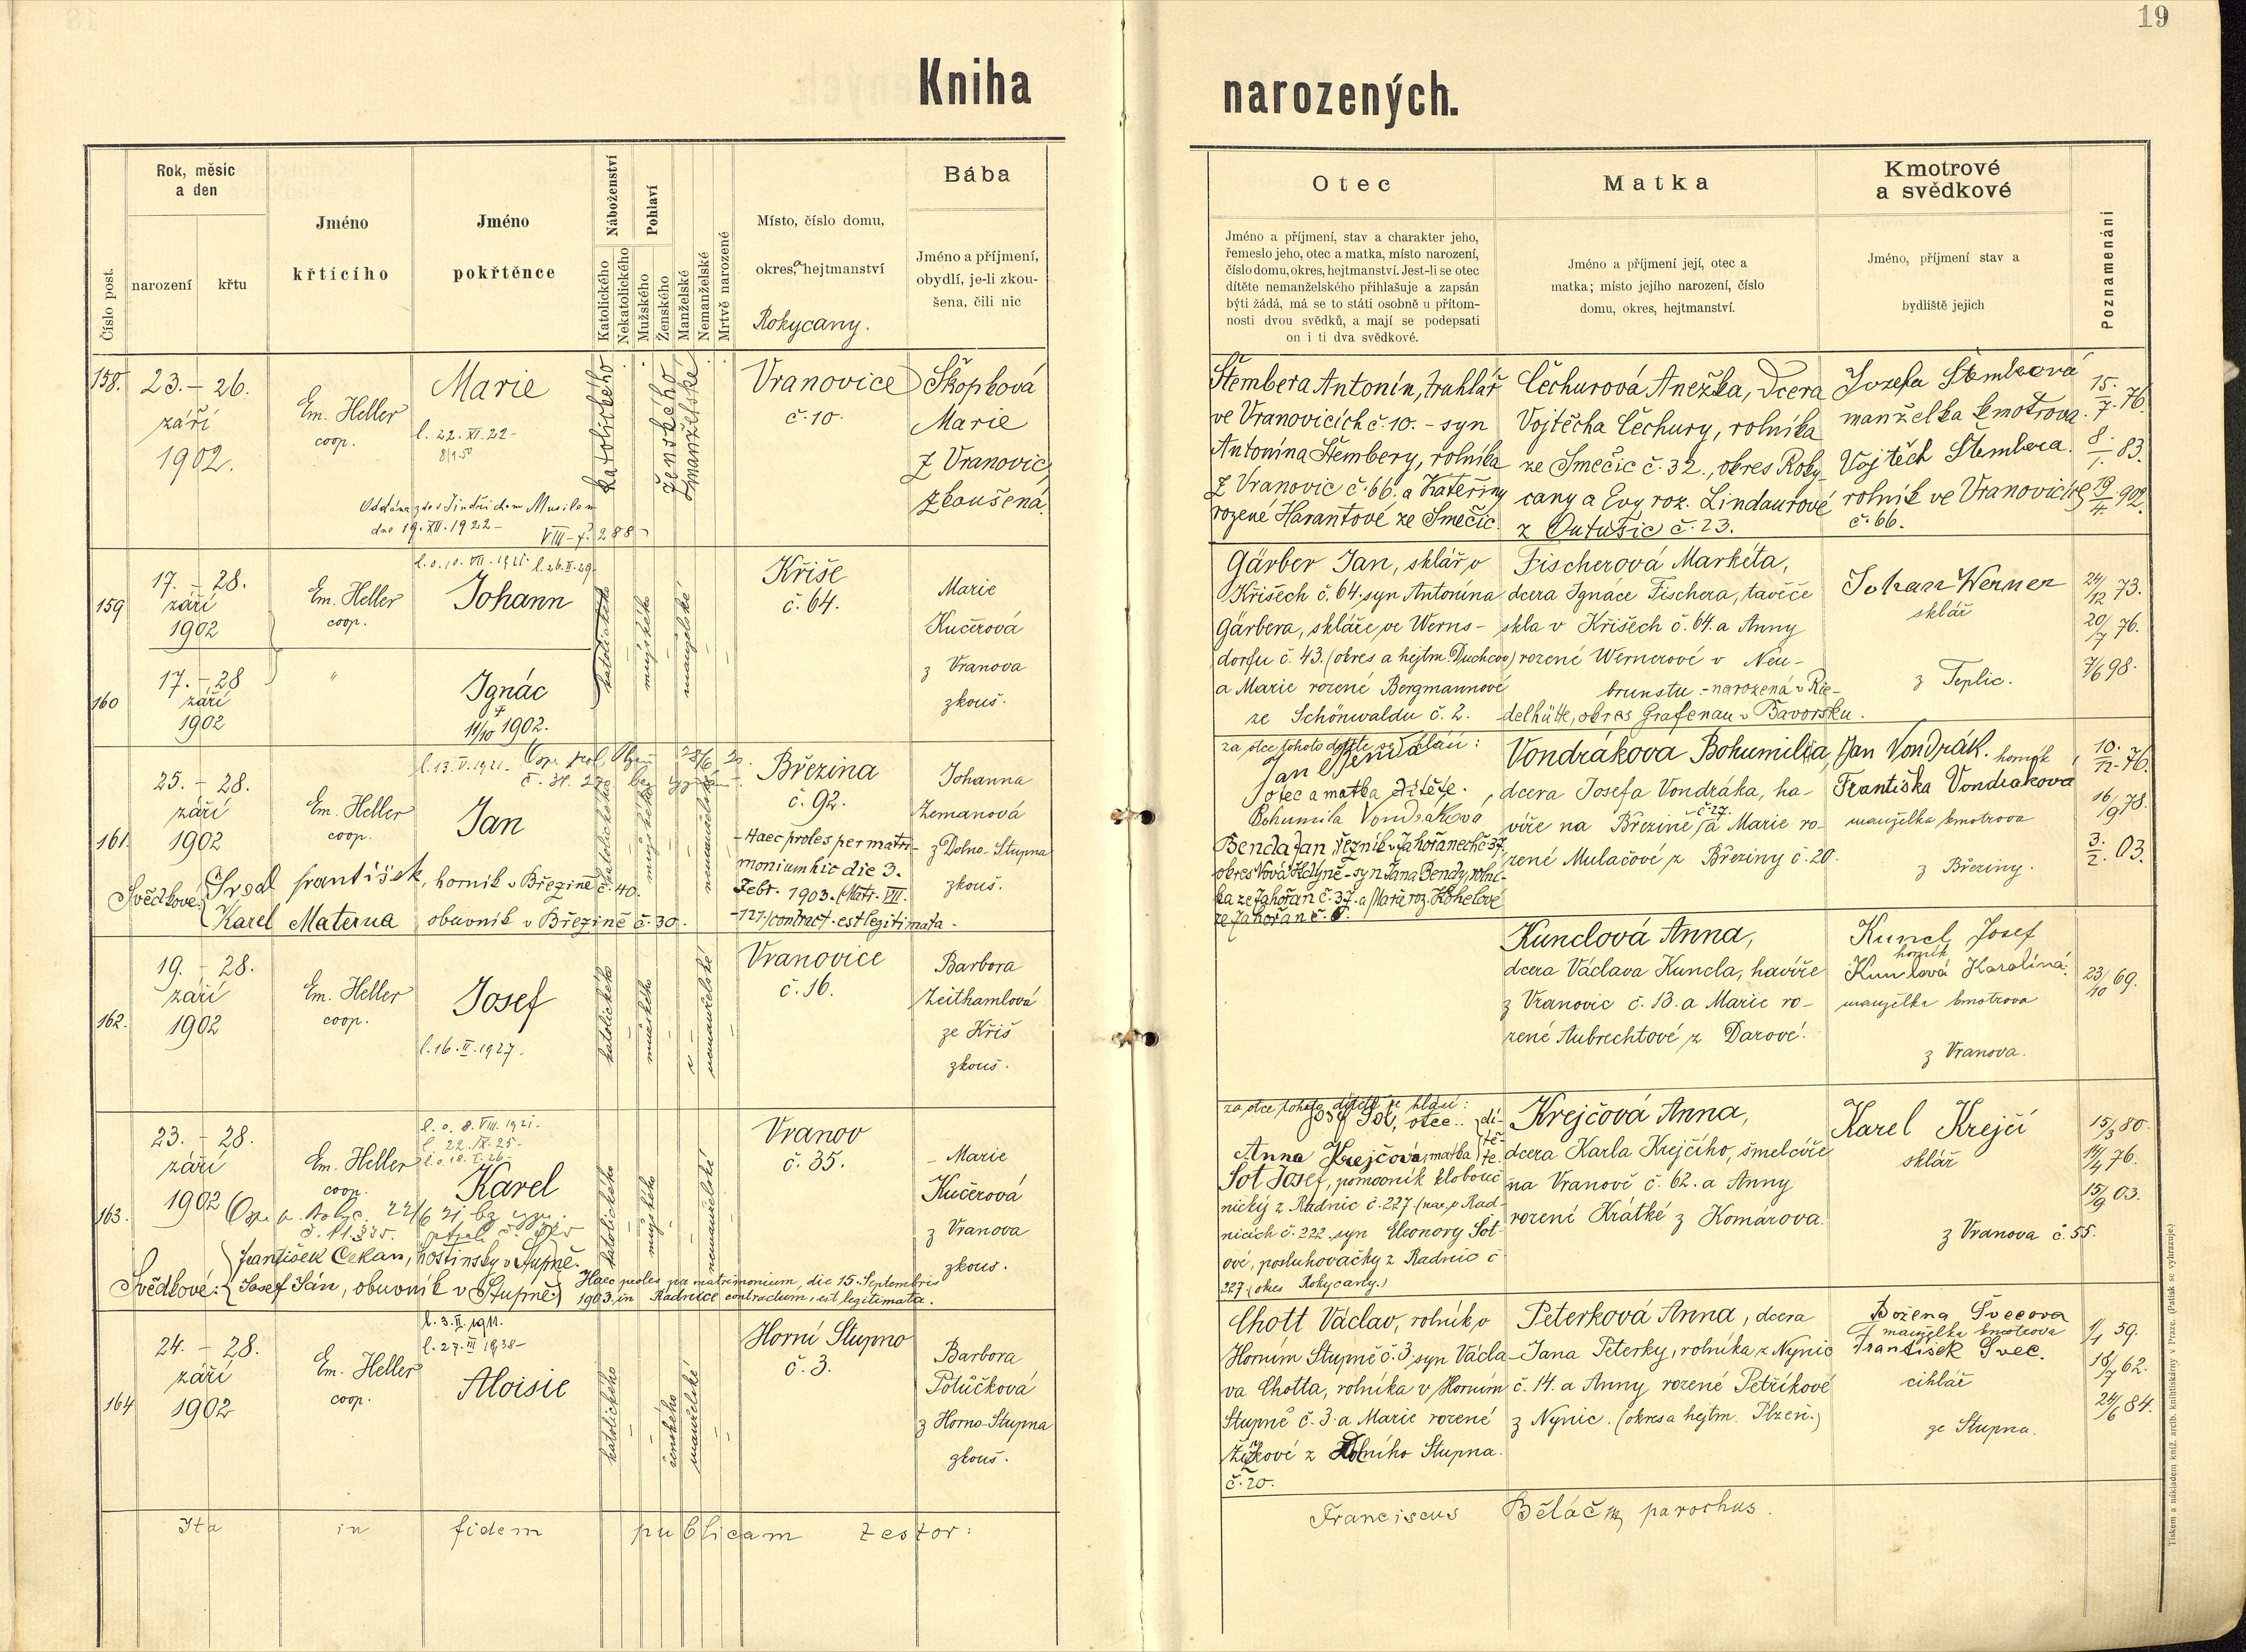 19
Kniha narozených.
Číslo post.
Rok, měsíc
a den
narození
křtu
Jméno
křtícího
Jméno
pokřtěnce
Náboženství
Katolického
Nekatolického
Pohlaví
Mužského
Ženského
Manželské
Nemanželské
Mrtvě narozené
Místo, číslo domu,
okres, a hejtmanství
Rokycany.
Bába
Jméno a příjmení,
obydlí, je-li zkou-
šena, čili nic
Otec
Jméno a příjmení, stav a charakter jeho,
řemeslo jeho, otec a matka, místo narození,
číslo domu, okres, hejtmanství. Jest-li se otec
dítěte nemanželského přihlašuje a zapsán
býti žádá, má se to státi osobně u přítom-
nosti dvou svědků, a mají se podepsati
on i ti dva svědkové.
Matka
Jméno a příjmení její, otec a
matka; místo jejího narození, číslo
domu, okres, hejtmanství.
Kmotrové
a svědkové
Jméno, příjmení stav a
bydliště jejich
Poznamenání
158.
23. – 26.
září
1902.
Em. Heller
coop.
Marie
l. 22. XI. 22 -
Oddána zde s Jindřichem Musilem
dne 19. XII. 1922 -
VIII – f. 288
katolického
ženského
manželské
Vranovice
č. 10.
Škopková
Marie
z Vranovic
zkoušená.
Štembera Antonín, truhlář
ve Vranovicích č. 10. – syn
Antonína Štembery, rolníka
z Vranovic č. 66. a Kateřiny
rozené Harantové ze Smečic.
Čechurová Anežka, dcera
Vojtěcha Čechury, rolníka
ze Smečic č. 32., okres Roky
cany a Evy roz. Lindaurové
z Outušic č. 23.
Jozefa Štemberová
manželka kmotrova
Vojtěch Štembera.
rolník ve Vranovicích
č. 66.
15./7. 76.
8./1. 83.
19/4 902.
159
17. – 28.
září
1902
Em. Heller
coop.
l. o. 10. VII. 1921. l. 26. II. 29.
Johann
katolického
mužského
manželské
Kříše
č. 64.
Marie
Kučerová
z Vranova
zkouš.
Gärber Jan, sklář v
Kříšech č. 64. syn Antonína
Gärbera, skláře ve Werns-
dorfu č. 43. (okres a hejtm. Duchcov)
a Marie rozené Bergmannové
ze Schönwaldu č. 2.
Fischerová Markéta,
dcera Ignáce Fischera, taviče
skla v Kříšech č. 64. a Anny
rozené Wernerové v Neu-
brunstu. – narozená v Rie-
delhütte, okres Grafenau v Bavorsku.
Johan Werner
sklář
z Teplic.
24/12 73.
20/7 76.
7/6 98.
160
17. – 28
září
1902
"
Ignác
†
11/10 1902.
161.
25. – 28.
září
1902
Em. Heller
coop.
l. 13. V. 1921.
Jan
katolického
mužského
nemanželské
Březina
č. 92.
- Haec proles per matri-
monium hic die 3.
Febr. 1903. (Matr. VII.
- 127.) contract. est legitimata.
Johanna
Zemanová
z Dolno-Stupna
zkouš.
Svědkové:
František, horník v Březině č. 40.
Karel Materna, obuvník v Březině č. 30.
za otce tohoto dítěte se hlásí:
Jan Benda
otec a matka dítěte.
Bohumila Vondráková
Benda Jan, řezník v Zahořanech č. 37.
okres Nová Kdyně – syn Jana Bendy, rolní-
ka ze Zahořan č. 37. a Marie roz. Kohelové
ze Zahořan č. 6.
Vondrákova Bohumilia,
dcera Josefa Vondráka, ha-
víře na Březině č. 27. a Marie ro-
zené Mulačové z Březiny č. 20.
Jan Vondrák. horník
Františka Vondraková
manželka kmotrova
z Březiny.
10./12. 76.
16/9 78.
3./2. 03.
162.
19. – 28.
září
1902
Em. Heller
coop.
Josef
l. 16. II. 1927.
katolického
mužského
nemanželské
Vranovice
č. 16.
Barbora
Zeithamlová
ze Kříš
zkouš.
Kunclová Anna,
dcera Václava Kuncla, havíře
z Vranovic č. 13. a Marie ro-
zené Aubrechtové z Darové.
Kuncl Josef
horník
Kunclová Karolína.
manželka kmotrova
z Vranova.
23/10 69.
163.
23. – 28.
září
1902
Em. Heller
coop.
l. o. 8. VIII. 1921 -
l. 22. IX. 25 -
l. o. 18. I. 26 -
Karel
katolického
mužského
nemanželské
Vranov
č. 35.
Marie
Kučerová
z Vranova
zkouš.
Svědkové:
František Cekan, hostinský v Stupně.
Josef Ján, obuvník v Stupně.
Haec proles per matrimonium, die 15. Septembris
1903. in Radnice contractum, est legitimata.
za otce tohoto dítěte se hlásí:
Josef Šot, otec.. dí-
Anna Krejčová, matka tě-te.
Šot Josef, pomocník klobouč
nický z Radnic č. 227. (nar. v Rad-
nicích č. 222. syn Eleonory Šot-
ové, posluhovačky z Radnic č
227. (okres Rokycany.)
Krejčová Anna,
dcera Karla Krejčího, šmelcíře
na Vranově č. 62. a Anny
rození Krátké z Komárova.
Karel Krejčí
sklář
z Vranova č. 55.
15/3 80.
14/4 76.
15/9 03.
164
24. – 28.
září
1902
Em. Heller
coop.
l. 3. II. 1911.
l. 27. III 1938 -
Aloisie
katolického
ženského
manželské
Horní Stupno
č. 3.
Barbora
Polučková
z Horno-Stupna
zkouš.
Chott Václav, rolník v
Horním Stupně č. 3, syn Václa-
va Chotta, rolníka v Horním
Stupně č. 3 a Marie rozené
Žižkové z Dolního Stupna.
č. 20.
Peterková Anna, dcera
Jana Peterky, rolníka z Nynic
č. 14. a Anny rozené Petříkové
z Nynic. (okres a hejtm. Plzeň.)
Božena Švecova
manželka kmotrova
František Švec.
cihlář
ze Stupna.
1/1 59.
18/7 62.
24/6 84.
Ita in fidem publicam testor:
Franciscus Běláč parochus.
Tiskem a nákladem kníž. arcib. knihtiskárny v Praze. (Patisk se vyhrazuje.)